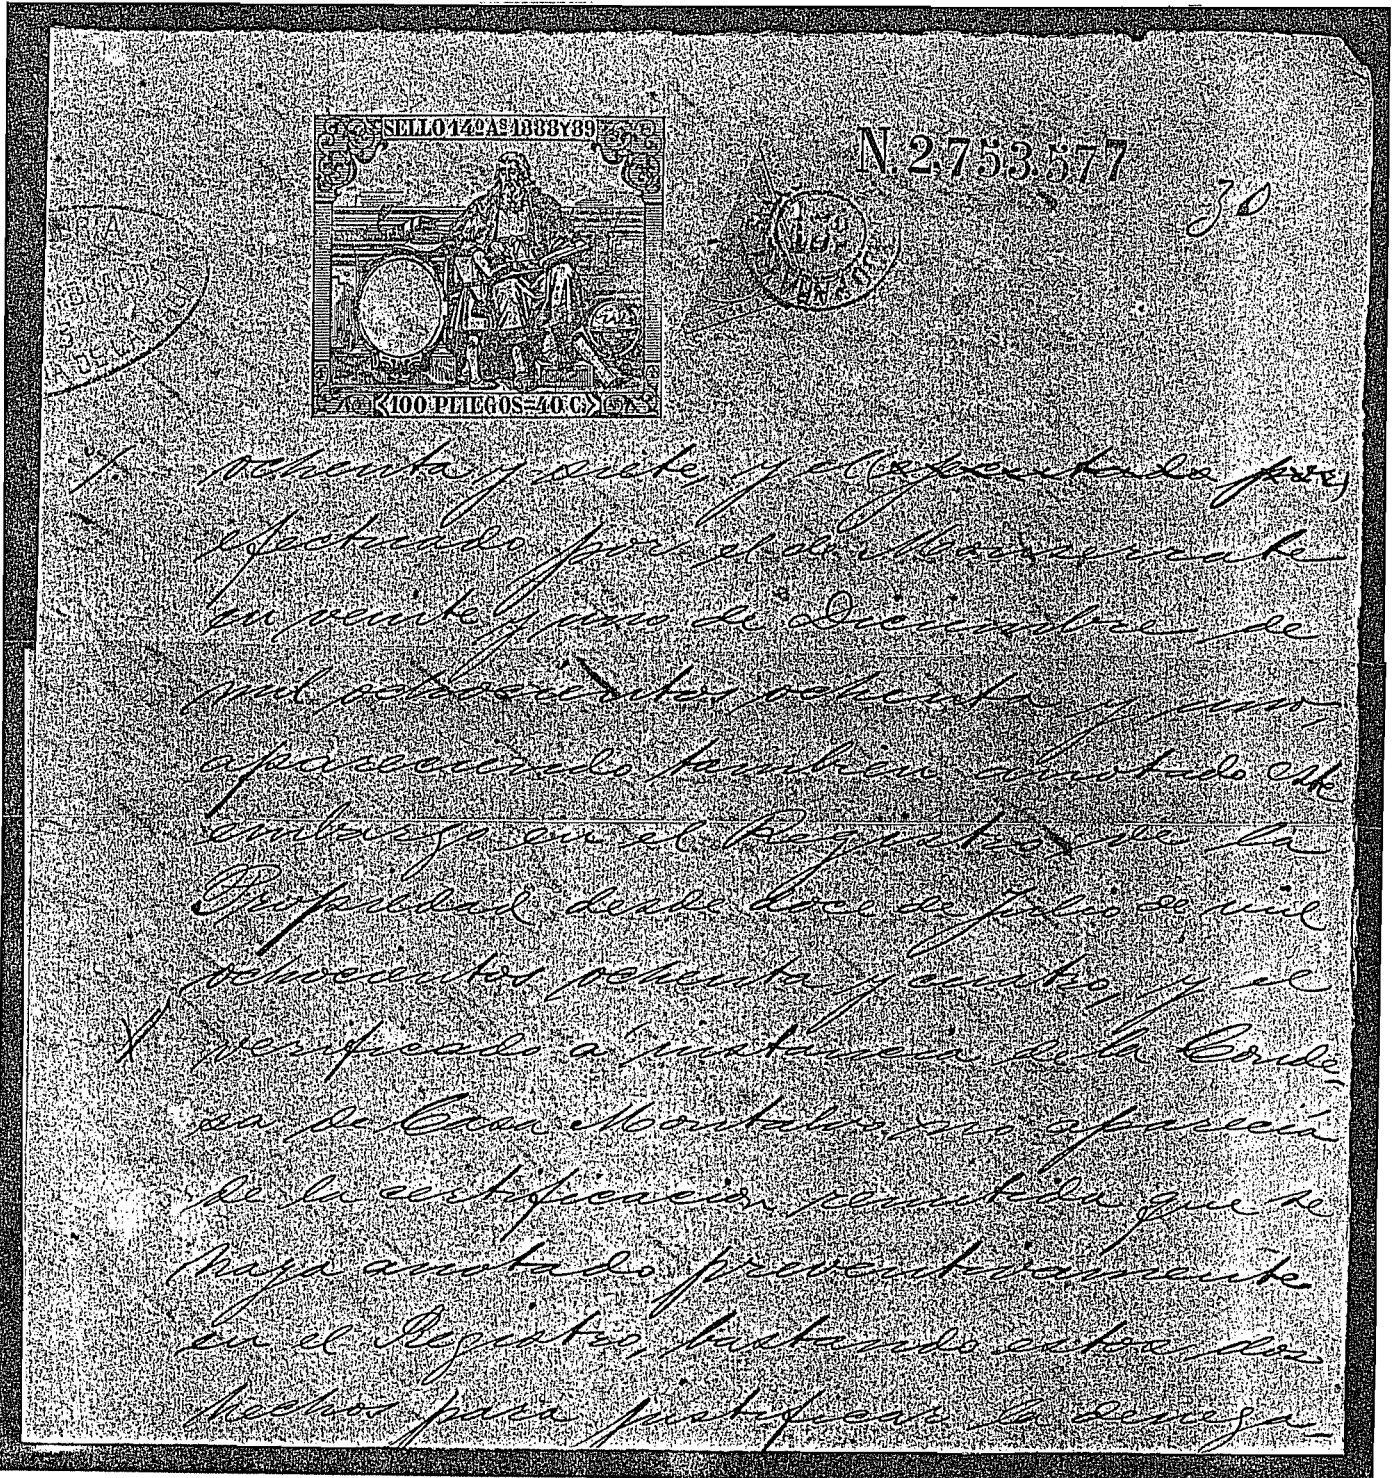 SELLO 14º Aº 1888 Y 89
N. 2.753.577
30
100 PLIEGOS=40 C.
ochenta y siete, y el
efectuado por el de Monserrate
en veinte y uno de Diciembre de
mil ochocientos ochenta y uno,
apareciendo tambien anotado este
embargo en el Registro de la
Propiedad desde doce de Julio de mil
ochocientos ochenta y cuatro, y el
verificado a instancia de la Conde-
sa de Casa Montalvo, no aparecia
de la certificacion remitida que se
haya anotado preventivamente
en el Registro, bastando estos dos
hechos para justificar la denega-